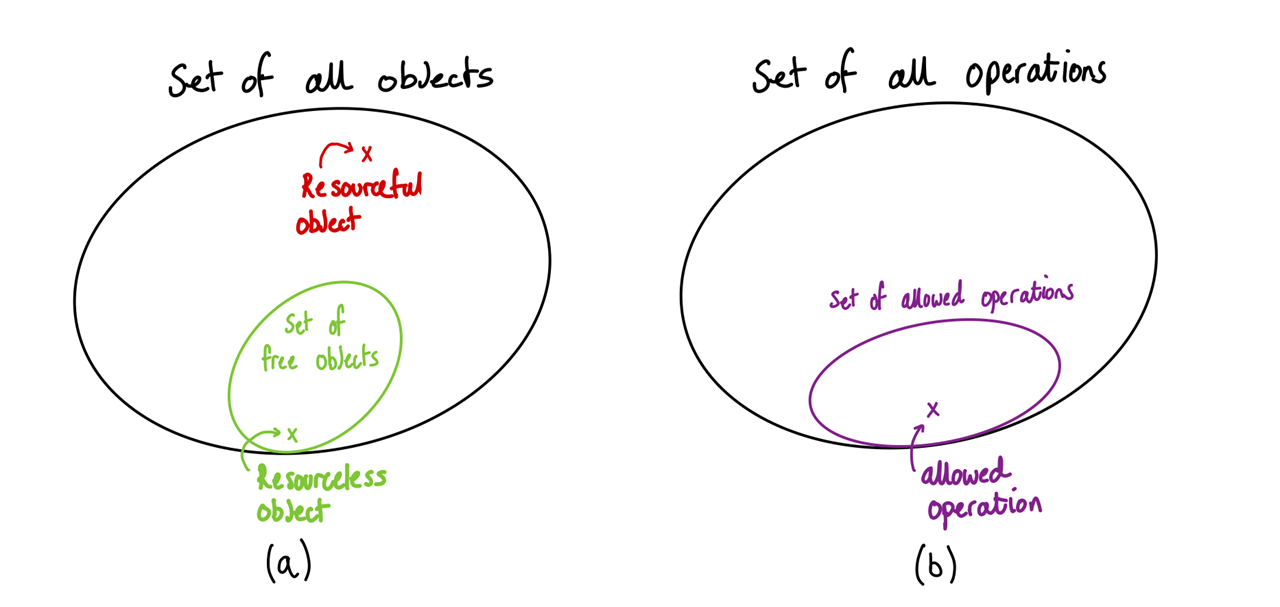 Set of all objects
x
Resourceful
object
Set of
free objects
x
Resourceless
object
(a)
Set of all operations
Set of allowed operations
x
allowed
operation
(b)